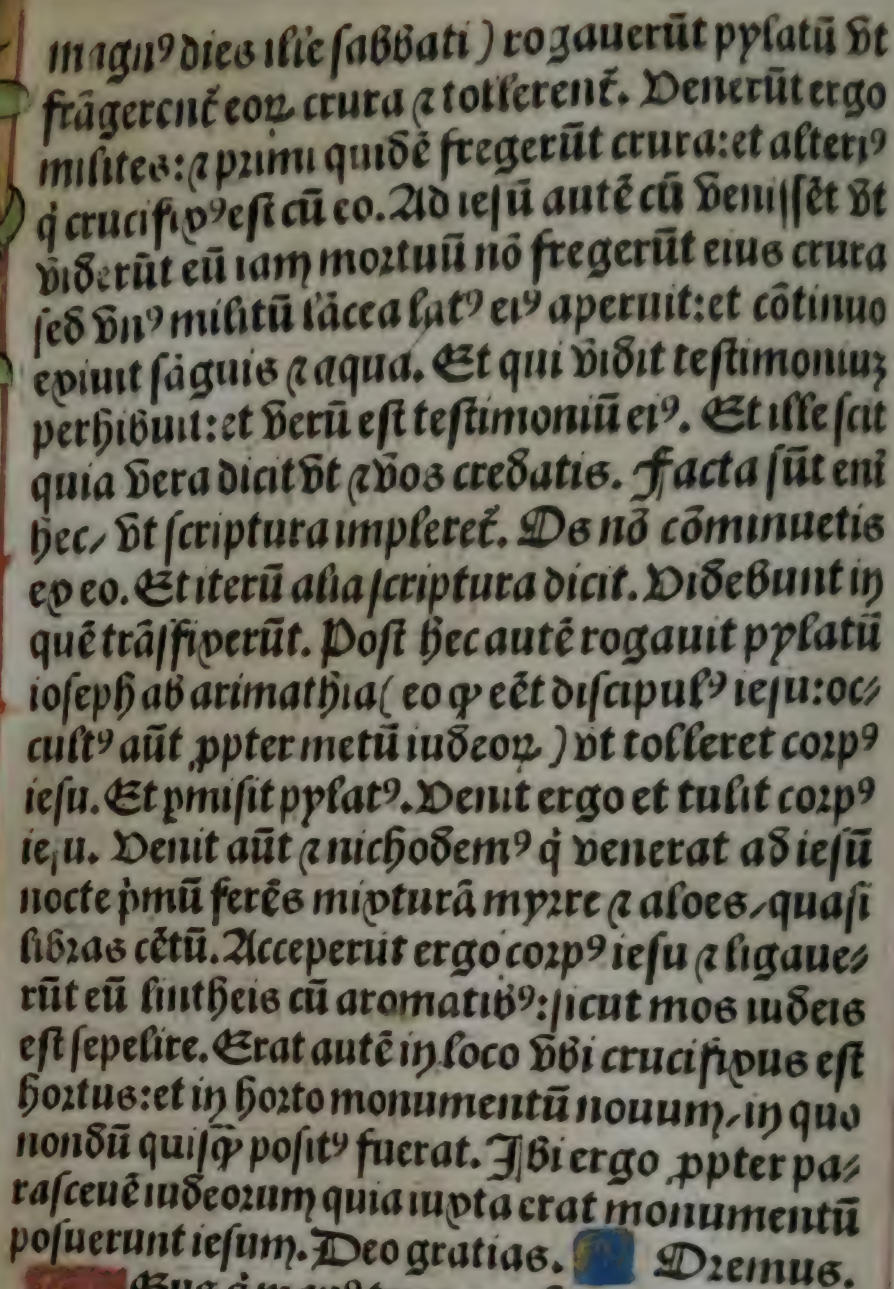 magnꝰ dies ille sabbati) rogauerūt pylatū vt
frāgerent᷑ eoꝝ crura ⁊ tollerent᷑. Venerūt ergo
milites: ⁊ primi quidē fregerūt crura: et alteriꝰ
q̇ crucifixꝰ est cū eo. Ad iesū autē cū venissēt vt
viderūt eū iam mortuū nō fregerūt eius crura
sed vnꝰ militū lācea latꝰ eiꝰ aperuit: et cōtinuo
exiuit sāguis ⁊ aqua. Et qui vidit testimoniuꝫ
perhibuit: et verū est testimoniū eiꝰ. Et ille scit
quia vera dicit vt ⁊ vos credatis. Facta sūt eni
hec/ vt scriptura impleret᷑. Os nō cōminuetis
ex eo. Et iterū alia scriptura dicit. Videbunt in
quē trāsfixerūt. Post hec autē rogauit pylatū
ioseph ab arimathia( eo ꝙ eēt discipulꝰ iesu: oc⸗
cultꝰ aūt ꝓpter metū iudeoꝝ ) vt tolleret corpꝰ
iesu. Et ꝑmisit pylatꝰ. Venit ergo et tulit corpꝰ
iesu. Venit aūt ⁊ nichodemꝰ q̇ venerat ad iesū
nocte ṗmū ferēs mixturā myrre ⁊ aloes/ quasi
libras cētū. Acceperūt ergo corpꝰ iesu ⁊ ligaue⸗
rūt eū lintheis cū aromatibꝰ: sicut mos iudeis
est sepelire. Erat autē in loco vbi crucifixus est
hortus: et in horto monumentū nouum/ in quo
nondū quisꝙ̄ positꝰ fuerat. Ibi ergo ꝓpter pa⸗
rasceuē iudeorum quia iuxta erat monumentū
posuerunt iesum. Deo gratias. Oremus.